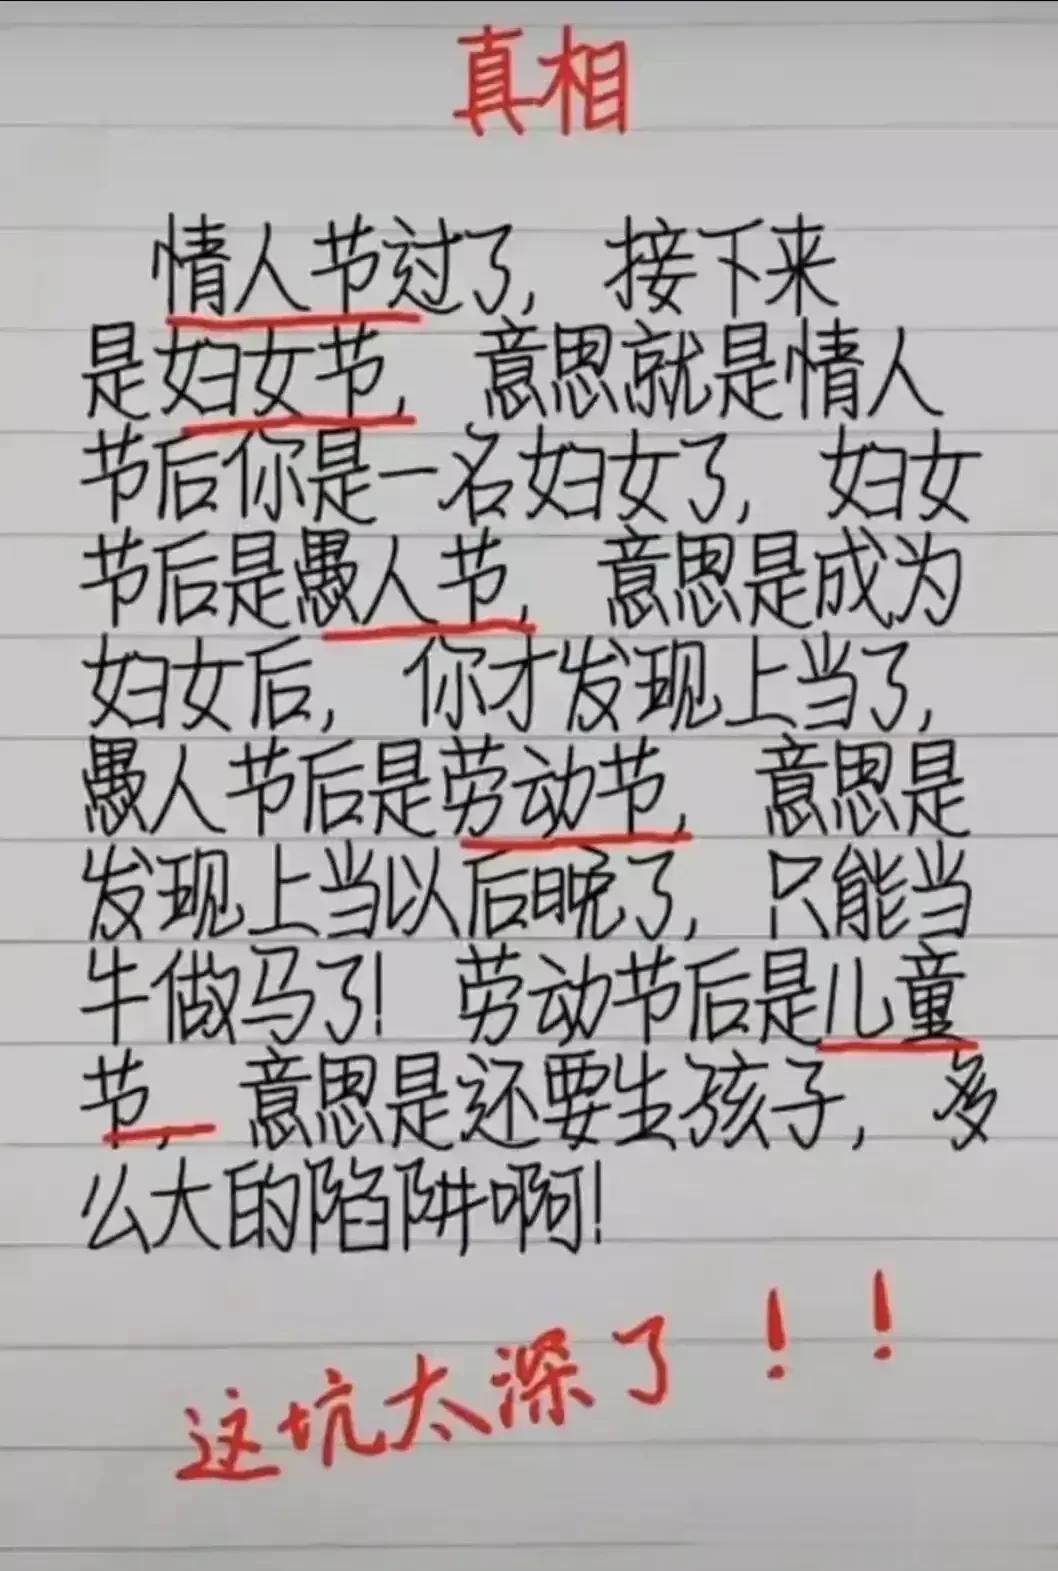 真相
情人节过了, 接下来
是妇女节, 意思就是情人
节后你是一名妇女了, 妇女
节后是愚人节, 意思是成为
妇女后, 你才发现上当了,
愚人节后是劳动节, 意思是
发现上当以后晚了, 只能当
牛做马了! 劳动节后是儿童
节, 意思是还要生孩子, 多
么大的陷阱啊!
这坑太深了!!